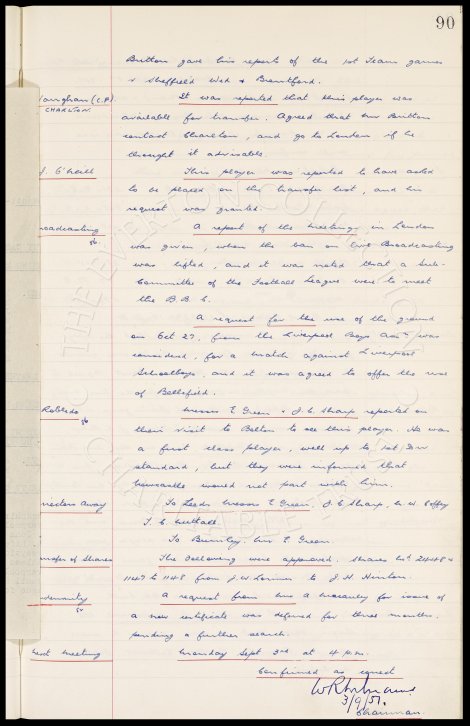 90
Britton gave his reports of the 1st Team games
v Sheffield Wed & Brentford.
Vaughan (C.F). It was reported that this player was
CHARLTON.
available for transfer. Agreed that Mr Britton
contact Charlton, and go to London if he
thought it advisable.
J. O'Neill This player was reported to have asked
to be placed on the transfer list, and his
request was granted.
roadcasting A report of the meetings in London
was given, when the ban on Live Broadcasting
was lifted, and it was noted that a Sub-
Committee of the Football League were to meet
the B.B.C.
A request for the use of the ground
on Oct 27, from the Liverpool Boys Assn was
considered, for a match against Liverpool
Schoolboys, and it was agreed to offer the use
of Bellefield.
Robledo Messrs E. Green & J.C. Sharp reported on
their visit to Bolton to see this player. He was
a first class player, well up to 1st Divn
standard, but they were informed that
Newcastle would not part with him.
irectors Away To Leeds Messrs E. Green, J.C. Sharp,
T.C. Nuttall.
To Burnley. Mr E. Green.
ansfer of Shares The following were approved. Shares
1147 to 1148 from J.W. to J.H.
ndemnity A request from for issue of
a new certificate was deferred for three months.
pending a further search.
Next Meeting Monday Sept 3rd at 4 p.m.
Confirmed as correct
3/9/51.
Chairman.
THE EVERTON COLLECTION
CHARITABLE TRUST